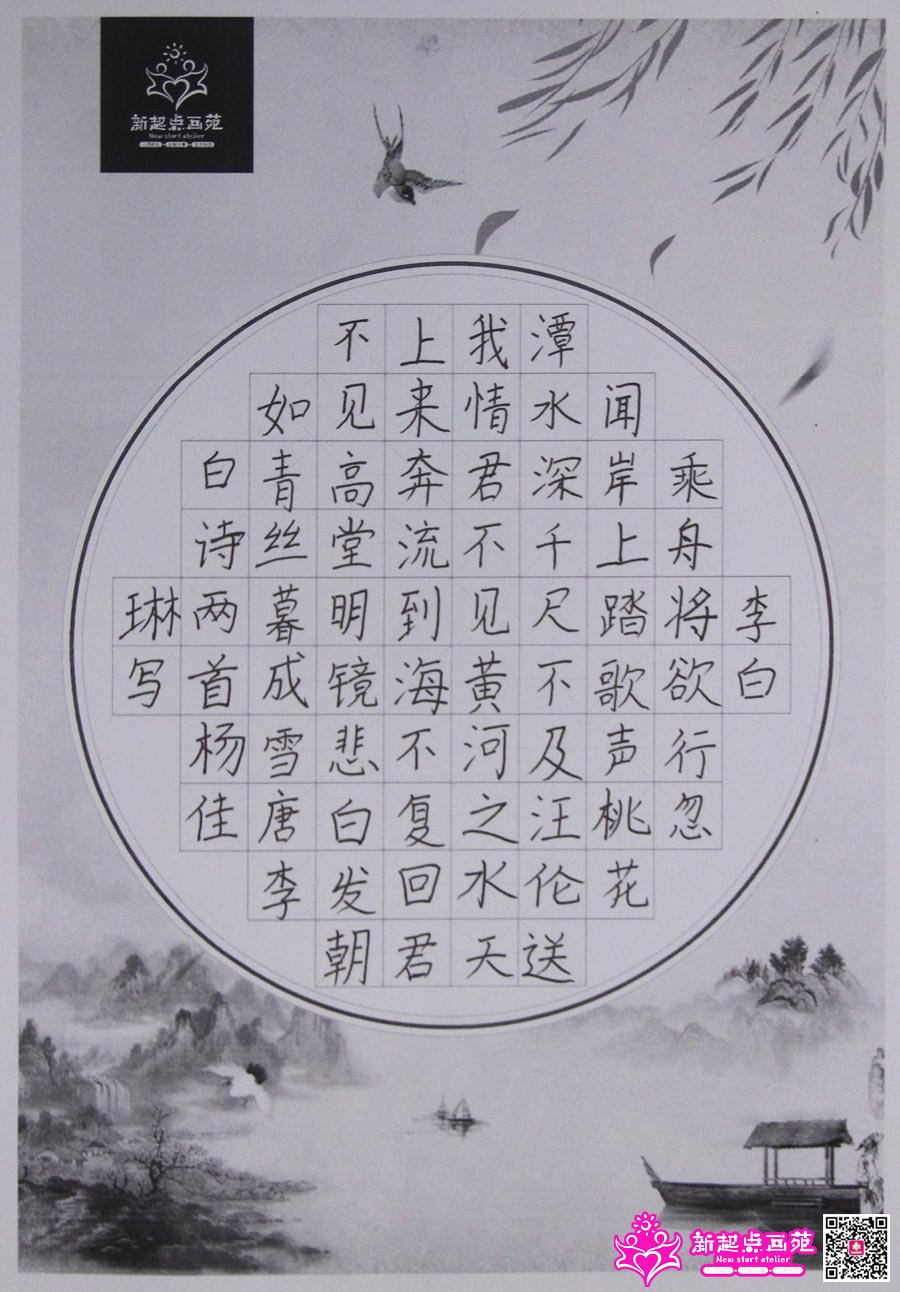 新起点画苑
New start atelier
李白
乘舟将欲行忽
闻岸上踏歌声桃花
潭水深千尺不及汪伦送
我情君不见黄河之水天
上来奔流到海不复回君
不见高堂明镜悲白发朝
如青丝暮成雪唐李
白诗两首杨佳
琳写
新起点画苑
New start atelier